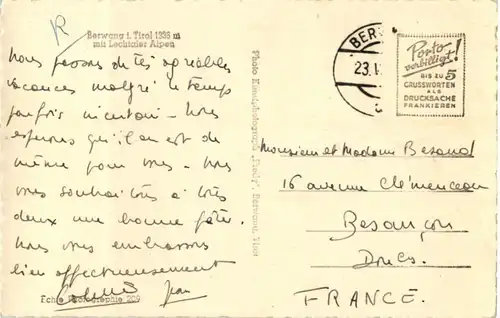 R
Berwang i. Tirol 1336 m
mit Lechtaler Alpen
Nous passons de très agréables
vacances malgré le temps
parfois incertain - Nous
espérons qu'il en est de
même pour vous - Nous
vous souhaitons à tous
deux une bonne fête.
Nous vous embrassons
bien affectueusement
Jean
Echte Photographie 209
BERW
23.V
Porto
verbilligt!
BIS ZU 5
GRUSSWORTEN
ALS
DRUCKSACHE
FRANKIEREN
Monsieur et Madame Besand
16 avenue Clémenceau
Besançon
Doubs.
FRANCE.